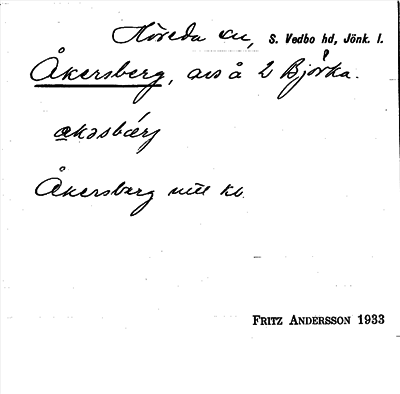 Höreda sn, S. Vedbo hd, Jönk. l.
Åkersberg, avs å 2 Björka.
Åkersberg uttl kb.
FRITZ ANDERSSON 1933